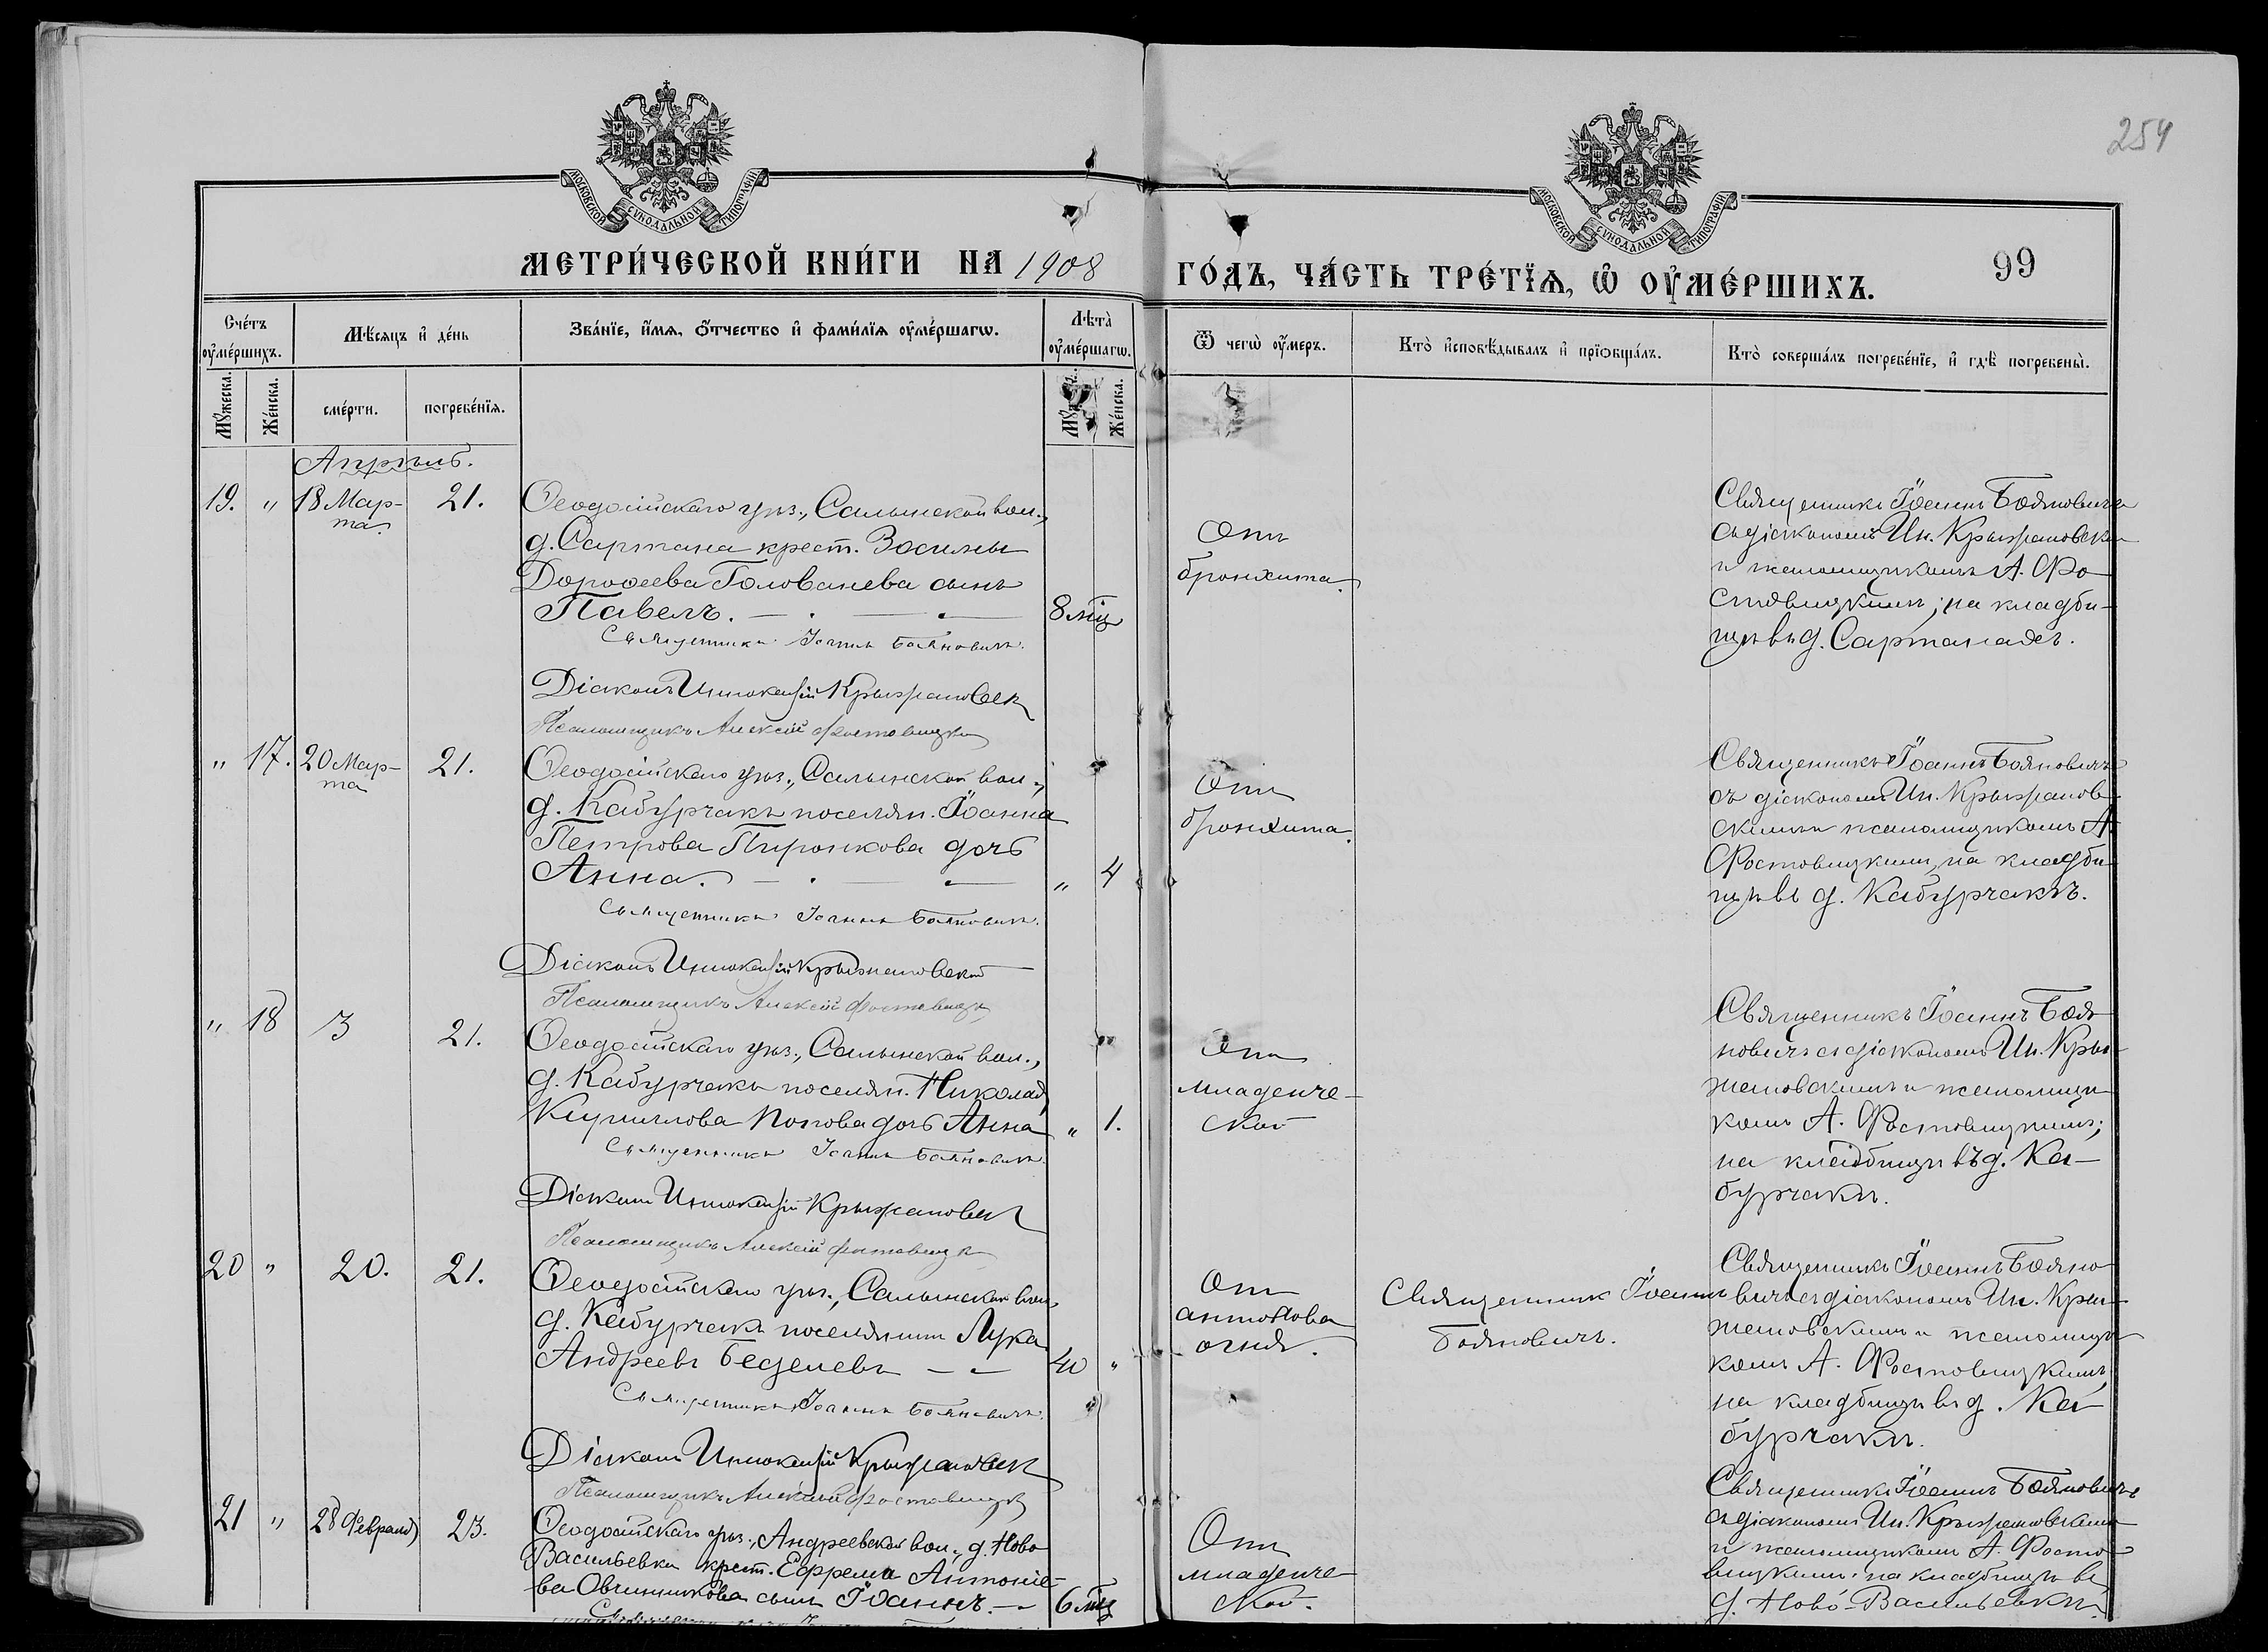 254
МОСКОВСКОЙ СѴНОДАЛЬНОЙ ТИПОГРАФІИ
МОСКОВСКОЙ СѴНОДАЛЬНОЙ ТИПОГРАФІИ
МЕТРИ́ЧЕСКОЙ КНИ́ГИ НА 1908
ГО́ДЪ, ЧА́СТЬ ТРЕ́ТІѦ, Ѡ҆ ОУ҆МЕ́РШИХЪ.
99
Сче́тъ оу҆ме́ршихъ.
Мꙋ́жеска.
Же́нска.
Мѣ́сѧцъ и҆ де́нь
сме́рти.
погребе́нїѧ.
Зва́нїе, и҆́мѧ, ѻ҆́тчество и҆ фами́лїѧ оу҆ме́ршагѡ.
Лѣ́та оу҆ме́ршагѡ.
Же́нска.
Ѿ чегѡ̀ оу҆́меръ.
Кто̀ и҆сповѣ́дывалъ и҆ прїѻбща́лъ.
Кто̀ соверша́лъ погребе́нїе, и҆ гдѣ̀ погребены̀.
Апрѣль.
19. " 18 Мар-
та.
21.
Ѳеодосійскаго уѣз., Салынской вол.,
д. Сартана крест. Василія
Дороѳеева Голованева сынъ
Павелъ. — . — . —
8 мѣц
Священникъ Іоаннъ Бояновичъ.
Діаконъ Иннокентій Крыжановск
Псаломщикъ Алексій Фостовицкій
Отъ
бронхита.
Священникъ Іоаннъ Бояновичъ
съ діакономъ Ин. Крыжановски
и псаломщикомъ А. Фо-
стовицкимъ; на кладби-
щѣ въ д. Сартанахъ.
" 17. 20 Мар-
та
21.
Ѳеодосійскаго уѣз., Салынской вол.,
д. Кабурчакъ поселян. Іоанна
Петрова Пиронкова дочь
Анна. — . — . —
" 4
Священникъ Іоаннъ Бояновичъ.
Діаконъ Иннокентій Крыжановскій
Псаломщикъ Алексій Фостовицкій
Отъ
бронхита.
Священникъ Іоаннъ Бояновичъ
съ діакономъ Ин. Крыжанов-
скимъ и псаломщикомъ А.
Фостовицкимъ, на кладби-
щѣ въ д. Кабурчакъ.
" 18 3 21.
Ѳеодосійскаго уѣз., Салынской вол.,
д. Кабурчакъ поселян. Николая
Кириллова Попова дочь Анна
" 1.
Священникъ Іоаннъ Бояновичъ.
Діаконъ Иннокентій Крыжановск
Псаломщикъ Алексій Фостовицкій
Отъ
младенче-
ской
Священникъ Іоаннъ Боя-
новичъ съ діакономъ Ин. Кры-
жановскимъ и псаломщи-
комъ А. Фостовицкимъ;
на кладбищѣ въ д. Ка-
бурчакъ.
20 " 20. 21.
Ѳеодосійскаго уѣз., Салынской вол.
д. Кабурчакъ поселянинъ Лука
Андреевъ Беделевъ — —
40 "
Священникъ Іоаннъ Бояновичъ.
Діаконъ Иннокентій Крыжановск
Псаломщикъ Алексій Фостовицкій
Отъ
антонова
огня.
Священник Іоаннъ
Бояновичъ.
Священникъ Іоаннъ Бояно-
вичъ съ діакономъ Ин. Кры-
жановскимъ и псаломщи-
комъ А. Фостовицкимъ,
на кладбищѣ въ д. Ка-
бурчакъ.
21 " 28 Февраля 23.
Ѳеодосійскаго уѣз., Андреевской вол., д. Ново
Васильевки крест. Ефрема Антоніе-
ва Овчинникова сынъ Іоаннъ. —
6 мѣц
Отъ
младенче-
ской.
Священникъ Іоаннъ Бояновичъ
съ діакономъ Ин. Крыжановскимъ
и псаломщикомъ А. Фосто-
вицкимъ: на кладбищѣ въ
д. Ново-Васильевкѣ.